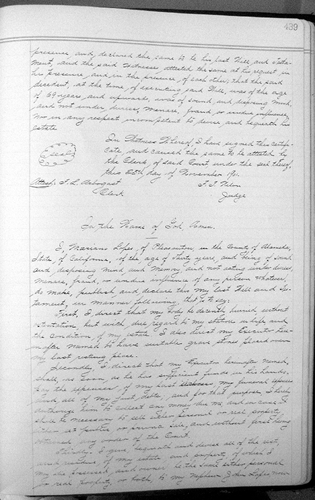 439
presence and, declared the same to be his last Will and Testa-
ment, and the said Witnesses attested the same at his request in
his presence, and, in the presence, of each other; that the said
decedent, at the time, of executing said Will, was of the age
of 69 years, and upwards, was of sound, and disposing mind,
and not under, duress, menace, fraud, or undue influence,
nor in any respect incompetent to devise, and bequeath his
estate.
In Witness Whereof, I have signed this certifi-
cate and caused the same to be attested by
the Clerk, of said Court under the seal thereof
this day of November
Seal
Attest,
Clerk
Judge
In the Name of God, Amen.
I, of Pleasanton, in the County of Alameda,
State of California, of the age of years, and being of sound
and disposing Mind and Memory, and not acting under duress
menace, fraud, or undue influence of any person whatever,
do make, publish and declare this my last Will and Tes-
tament, in manner following, that is to say:
First, I direct that my body be decently buried without
ostentation, but with due regard to my station in life and
the condition of my estate. I also direct my Executor here-
after named to have suitable grave stone placed over
my last resting place.
Secondly, I direct that my Executor hereinafter named,
shall as soon, as he has sufficient funds in his hands,
pay the expenses of my last my funeral expenses
and all of my just debts, and for that purpose, I
authorize him to collect any monies due me and in case
it should be necessary to sell either personal or real property
at public or private sale, and without first being
obtained any order of the Court.
Thirdly, I give, bequeath and devise all of the rest
and residue, of my estate and property of which I
may be possessed, and owner, be the same either personal
or real property or both to my nephew, John